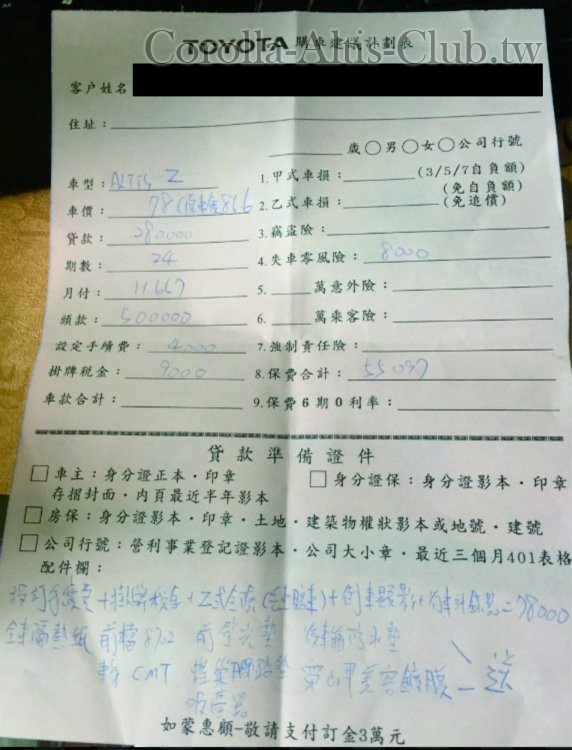 Corolla-Altis-Club.tw
TOYOTA 購車建議計劃表
客戶姓名
住址：
歲○男○女○公司行號
車型：ALTIS Z
1.甲式車損：(3/5/7自負額)
(免自負額)
車價：78
2.乙式車損：(免追償)
貸款：280000
3.竊盜險：
期數：24
4.失車零風險：8000
月付：11667
5.萬意外險：
頭款：500000
6.萬乘客險：
設定手續費：4000
7.強制責任險：
掛牌稅金：9000
8.保費合計：55097
車款合計：
9.保費6期0利率：
貸款準備證件
□車主：身分證正本・印章
存摺封面・內頁最近半年影本
□身分證保：身分證影本・印章
□房保：身分證影本・印章・土地・建築物權狀影本或地號・建號
□公司行號：營利事業登記證影本・公司大小章・最近三個月401表格
配件欄：
設定手續費+掛牌稅金+乙式全險()+倒車顯影+=78000
全車隔熱紙 前檔 前 墊 防水墊
CMT 腳踏墊 穿山甲美容鍍膜 送
如蒙惠顧-敬請支付訂金3萬元